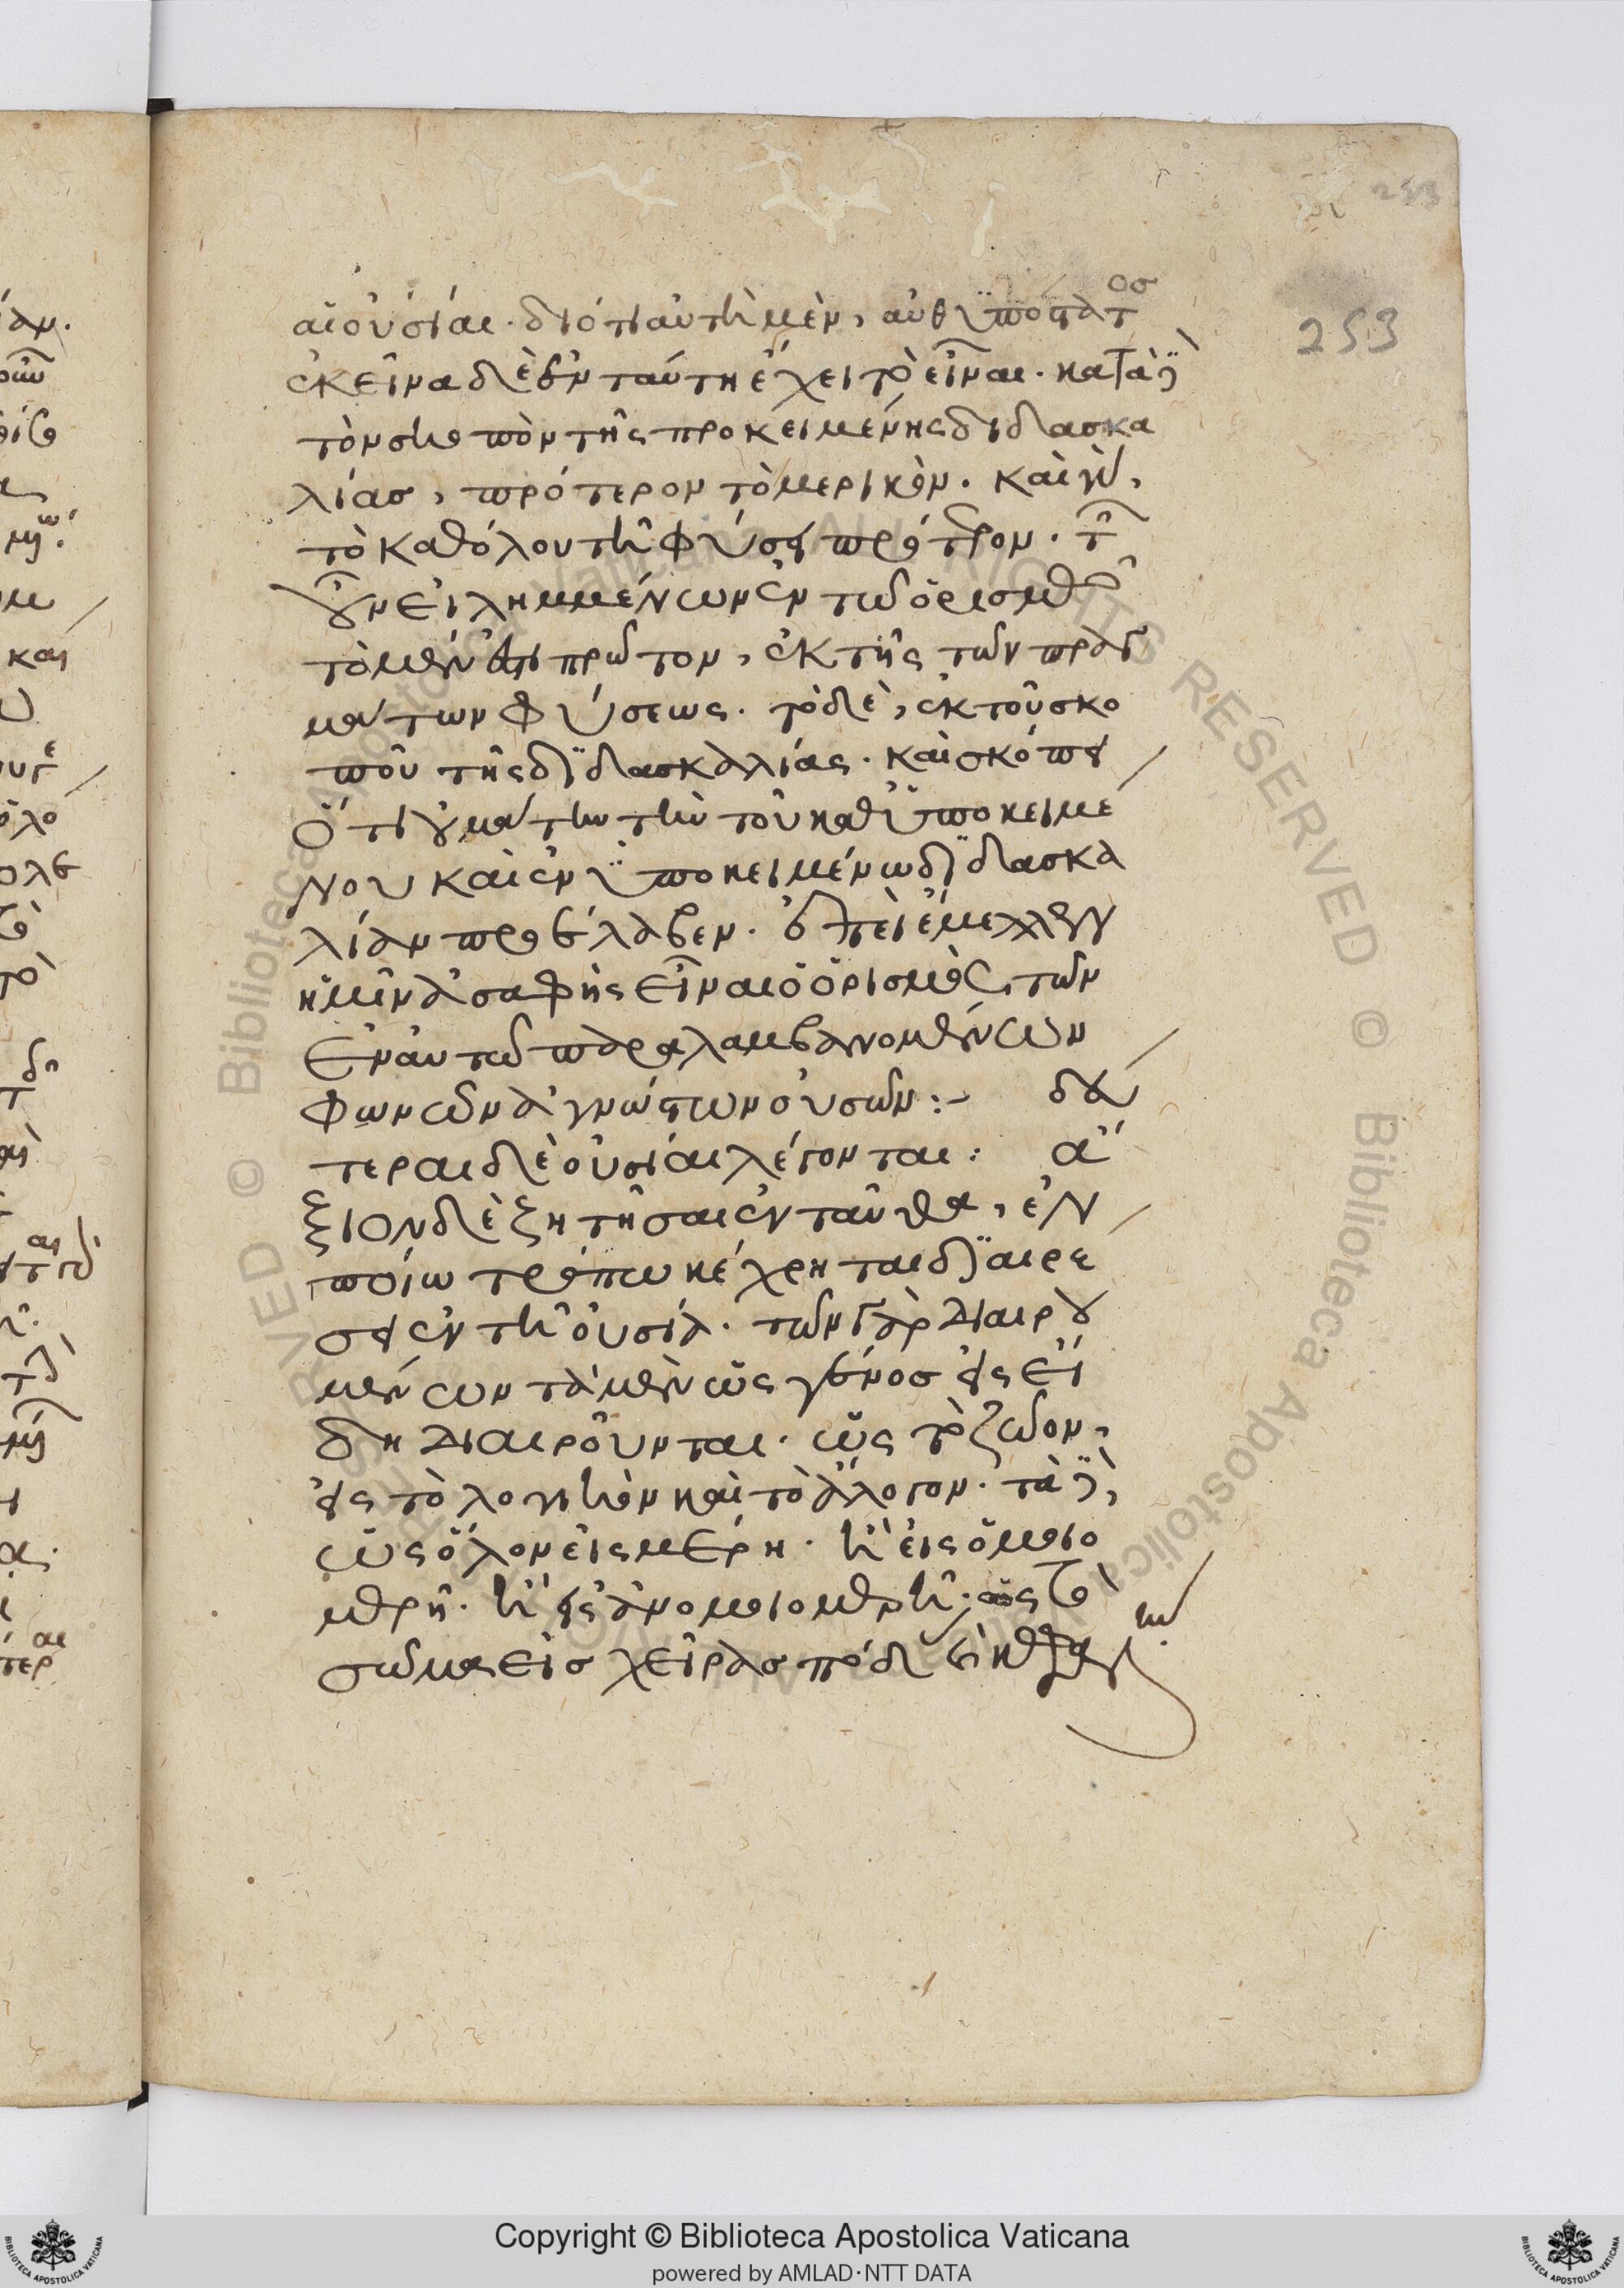 αἱ οὐσίαι· διότι αὐτὴ μὲν, αὐθυπόστατος
ἐκεῖνα δὲ ἐν ταύτῃ ἔχει τὸ εἶναι· κατὰ δὲ
τὸν σκοπὸν τῆς προκειμένης διδασκα
λίας, πρότερον τὸ μερικόν· καὶ γὰρ,
τὸ καθόλου τῇ φύσει πρότερον· τῶν
οὖν εἰλημμένων ἐν τῷ ὁρισμῷ
τὸ μέν ἐστι πρῶτον, ἐκ τῆς τῶν πραγ
μάτων φύσεως· τὸ δὲ, ἐκ τοῦ σκο
ποῦ τῆς διδασκαλίας· καὶ σκόπει
ὅτι οὐ μάτην τὴν τοῦ καθ' ὑποκειμέ
νου καὶ ἐν ὑποκειμένω διδασκα
λίαν προέλαβεν· ἐπεὶ ἔμελλεν
ἡμῖν ἀσαφὴς εἶναι ὁ ὁρισμὸς, τῶν
ἐν αὐτῷ παραλαμβανομένων
φωνῶν ἀγνώστων οὐσῶν :- δεύ
τεραι δὲ οὐσίαι λέγονται : ἄ
ξιον δὲ ζητῆσαι ἐνταῦθα, ἐν
ποίω τρόπω κέχρηται διαιρέ
σει ἐν τῇ οὐσία· τῶν γὰρ διαιρου
μένων τὰ μὲν ὡς γένος εἰς εἴ
δη διαιροῦνται· ὡς τὸ ζῶον,
εἰς τὸ λογικὸν καὶ τὸ ἄλογον· τὰ δὲ,
ὡς ὅλον εἰς μέρη· ἢ εἰς ὁμοιο
μερῆ· ἢ εἰς ἀνομοιομερῆ; ὡς τὸ
σῶμα εἰς χεῖρας πόδας καὶ κεφαλήν
253
Copyright © Biblioteca Apostolica Vaticana
powered by AMLAD·NTT DATA